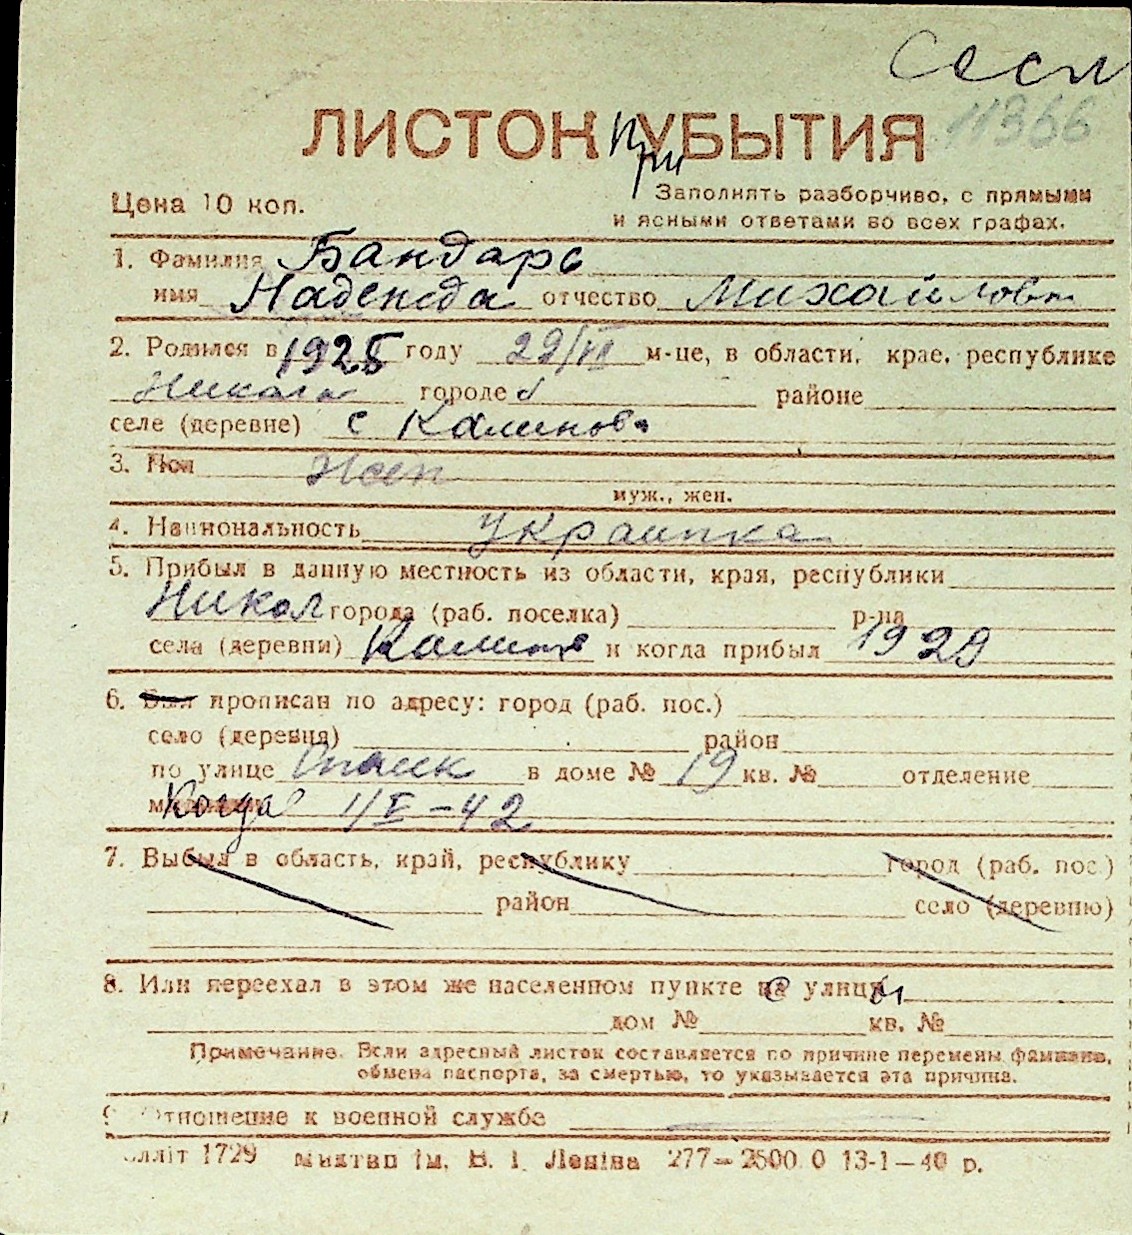 11366
ЛИСТОК При УБЫТИЯ
Цена 10 коп.
Заполнять разборчиво, с прямыми
и ясными ответами во всех графах.
1. Фамилия Бандарь
имя Надежда отчество Михайловн
2. Родился в 1925 году 29/VI м-це, в области, крае, республике
Никола городе районе
селе (деревне) с Калиновка
3. Пол Жен
муж., жен.
4. Национальность Украинка
5. Прибыл в данную местность из области, края, республики
Никол города (раб. поселка) р-на
села (деревни) Калинов и когда прибыл 1929
6. Был прописан по адресу: город (раб. пос.)
село (деревня) район
по улице Спасск в доме № 19 кв. № отделение
Когда 1/V-42
7. Выбыл в область, край, республику город (раб. пос.)
район село (деревню)
8. Или переехал в этом же населенном пункте с улицы
дом № кв. №
Примечание. Если адресный листок составляется по причине перемены фамилии,
обмена паспорта, за смертью, то указывается эта причина.
9. Отношение к военной службе
лліт 1729 ім. В. І. Леніна 277—2500.0 13-1—40 р.